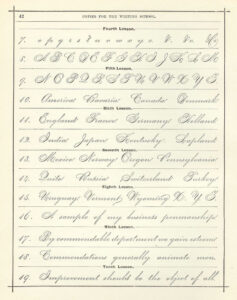 42 COPIES FOR THE WRITING SCHOOL.
Fourth Lesson.
7. o p q r s t u v w x y z.
8. A B C D E F G H I J K L M
Fifth Lesson.
9. N O P Q R S T U V W X Y Z
10. America Bavaria Canada Denmark
Sixth Lesson.
11. England France Germany Holland
12. India Japan Kentucky Lapland
Seventh Lesson.
13. Mexico Norway Oregon Pennsylvania
14. Quito Russia Switzerland Turkey
Eighth Lesson.
15. Uruguay Vermont Wyoming X Y Z
16. A sample of my business penmanship
Ninth Lesson.
17. By commendable deportment we gain esteem
18. Commendations generally animate men.
Tenth Lesson.
19. Improvement should be the object of all.